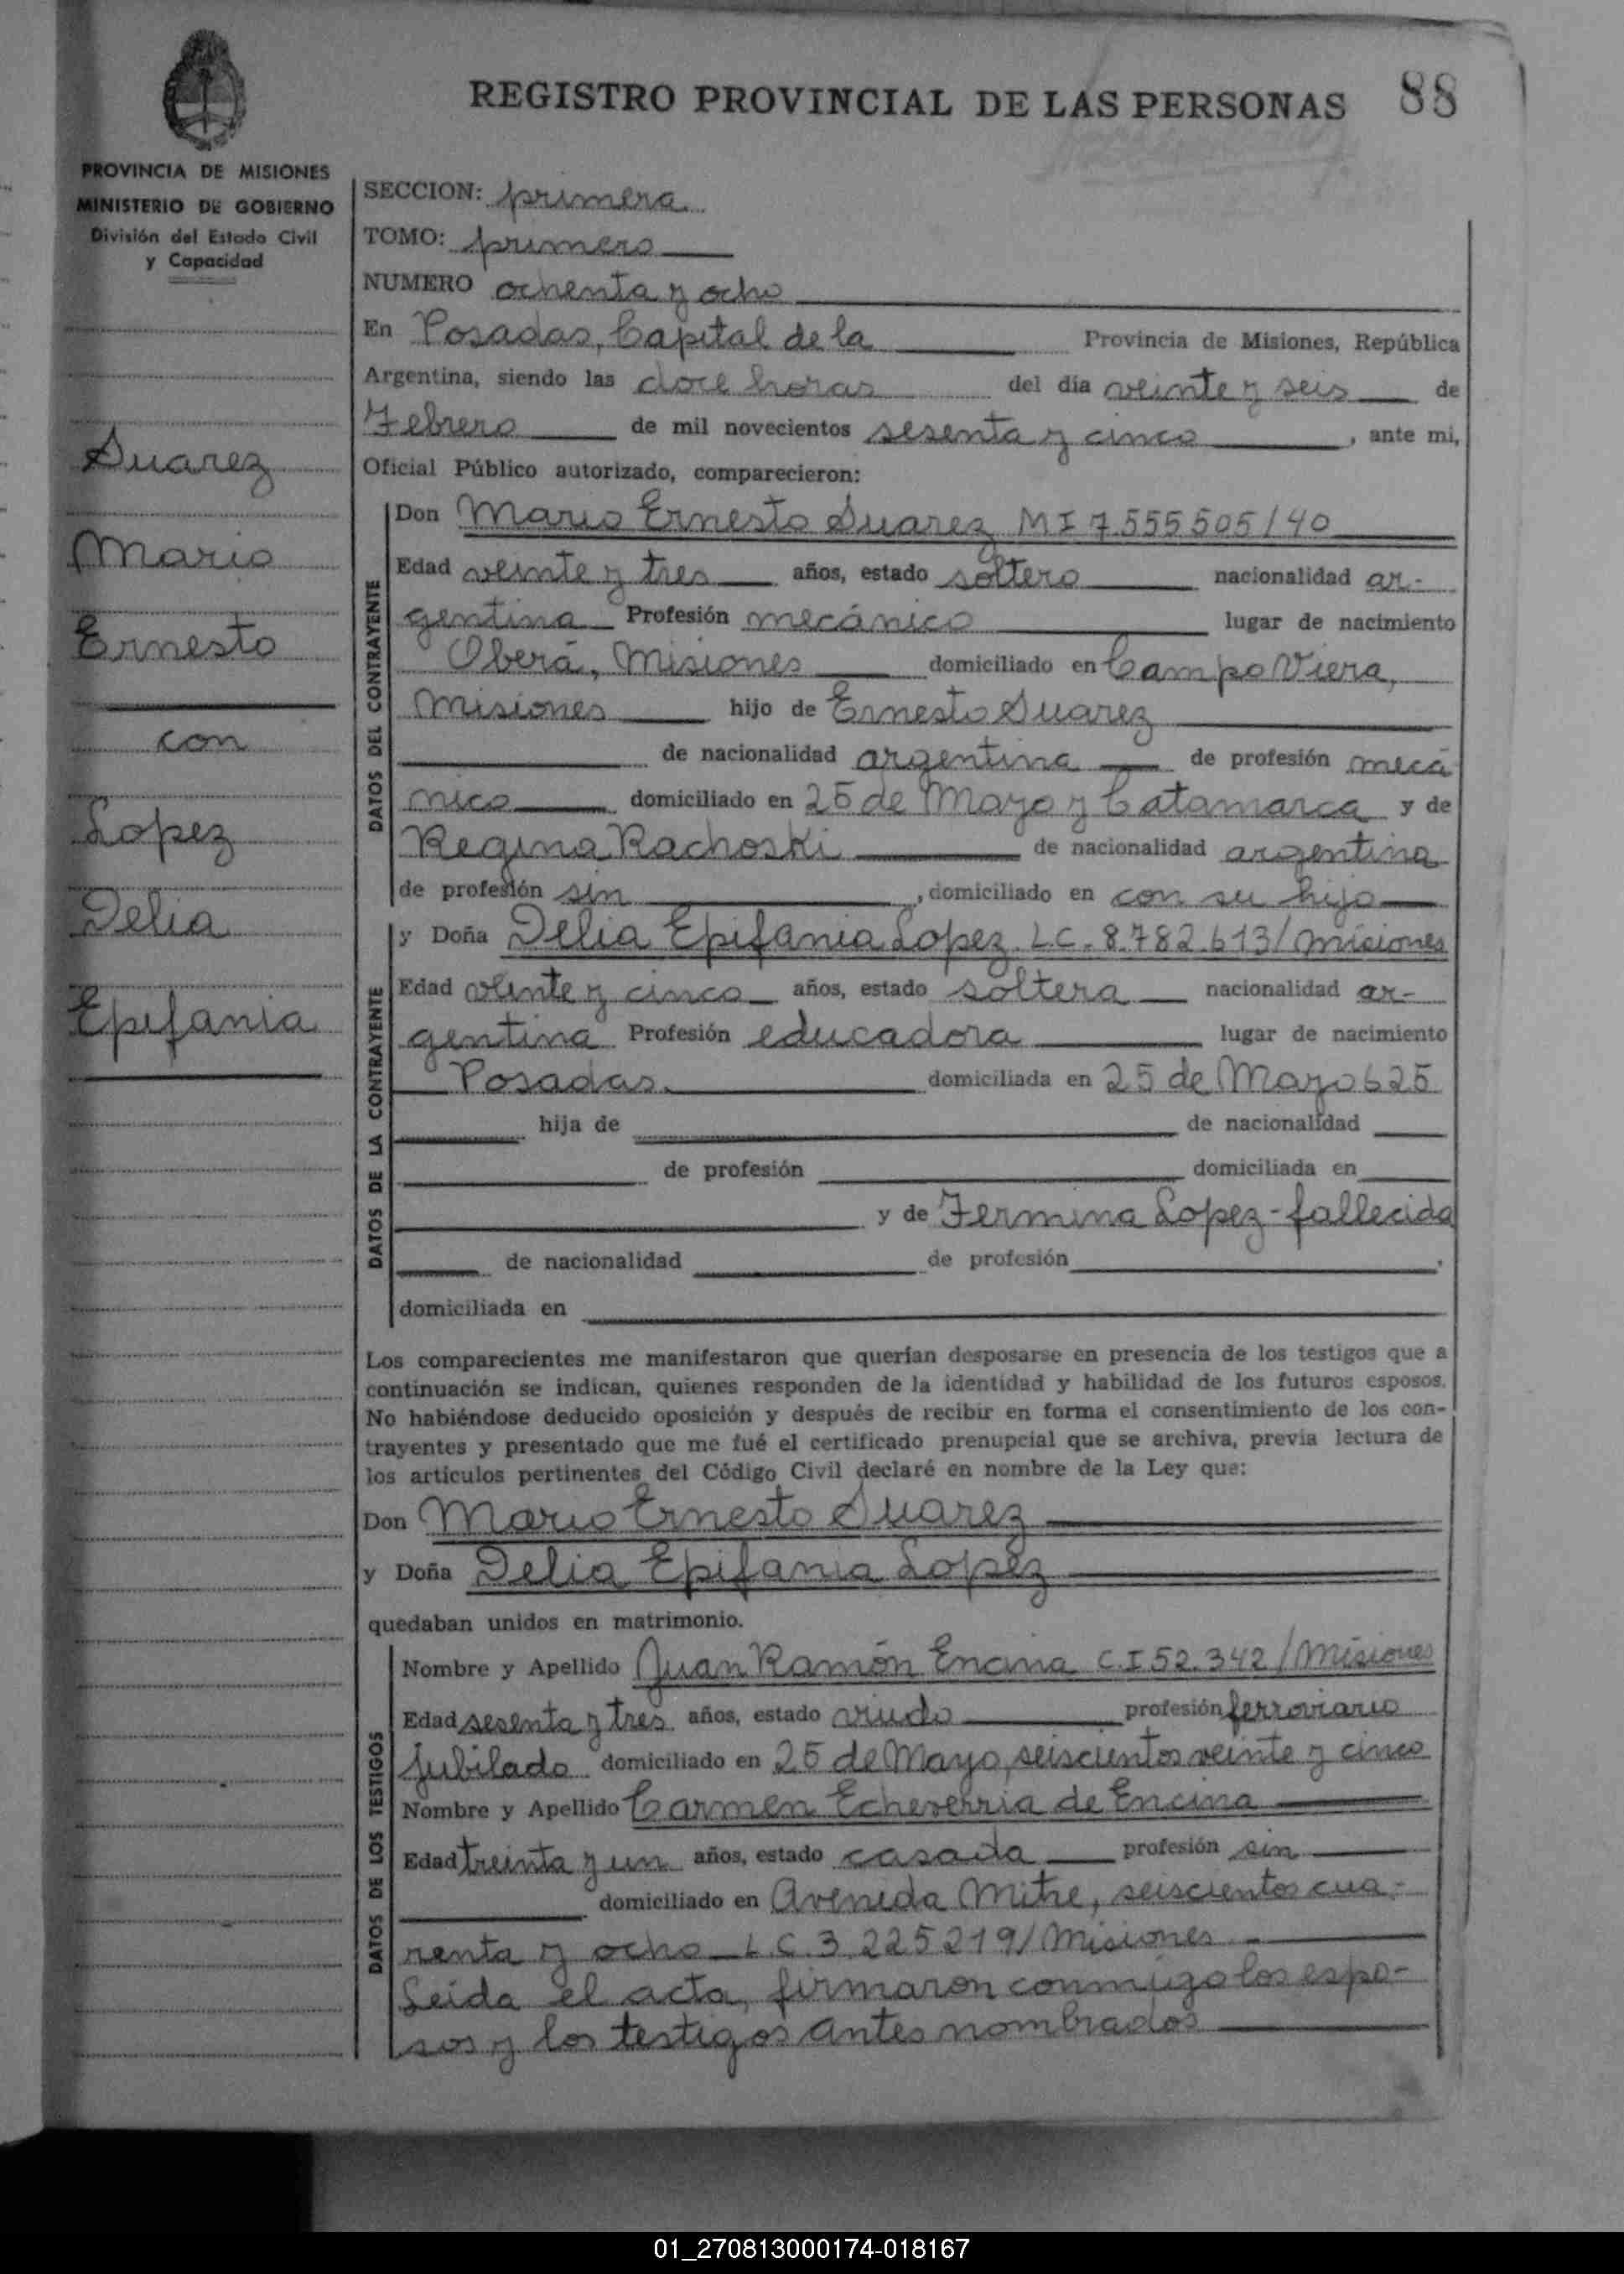 REGISTRO PROVINCIAL DE LAS PERSONAS 88
PROVINCIA DE MISIONES
MINISTERIO DE GOBIERNO
División del Estado Civil
y Capacidad
Suarez
Mario
Ernesto
con
Lopez
Delia
Epifania
SECCION: primera
TOMO: primero
NUMERO ochenta y ocho
En Posadas, Capital de la Provincia de Misiones, República
Argentina, siendo las doce horas del día veinte y seis de
Febrero de mil novecientos sesenta y cinco, ante mi,
Oficial Público autorizado, comparecieron:
DATOS DEL CONTRAYENTE
Don Mario Ernesto Suarez MI 7.555505/40
Edad veinte y tres años, estado soltero nacionalidad ar-
gentina Profesión mecánico lugar de nacimiento
Oberá, Misiones domiciliado en Campo Viera,
Misiones hijo de Ernesto Suarez
de nacionalidad argentina de profesión mecá
nico domiciliado en 25 de Mayo y Catamarca y de
Regina Rachoski de nacionalidad argentina
de profesión sin, domiciliado en con su hijo
DATOS DE LA CONTRAYENTE
y Doña Delia Epifania Lopez. LC. 8.782.613/Misiones
Edad veinte y cinco años, estado soltera nacionalidad ar-
gentina Profesión educadora lugar de nacimiento
Posadas. domiciliada en 25 de Mayo 625
hija de de nacionalidad
de profesión domiciliada en
y de Fermina Lopez-fallecida
de nacionalidad de profesión.
domiciliada en
Los comparecientes me manifestaron que querían desposarse en presencia de los testigos que a
continuación se indican, quienes responden de la identidad y habilidad de los futuros esposos.
No habiéndose deducido oposición y después de recibir en forma el consentimiento de los con-
trayentes y presentado que me fué el certificado prenupcial que se archiva, previa lectura de
los artículos pertinentes del Código Civil declaré en nombre de la Ley que:
Don Mario Ernesto Suarez
y Doña Delia Epifania Lopez
quedaban unidos en matrimonio.
DATOS DE LOS TESTIGOS
Nombre y Apellido Juan Ramón Encina C.I 52.342/Misiones
Edad sesenta y tres años, estado viudo profesión ferroviario
jubilado domiciliado en 25 de Mayo, seiscientos veinte y cinco
Nombre y Apellido Carmen Echeverria de Encina
Edad treinta y un años, estado casada profesión sin
domiciliado en Avenida Mitre, seiscientos cua-
renta y ocho L.C. 3.225219/Misiones
Leida el acta, firmaron conmigo los espo-
sos y los testigos antes nombrados
01_270813000174-018167